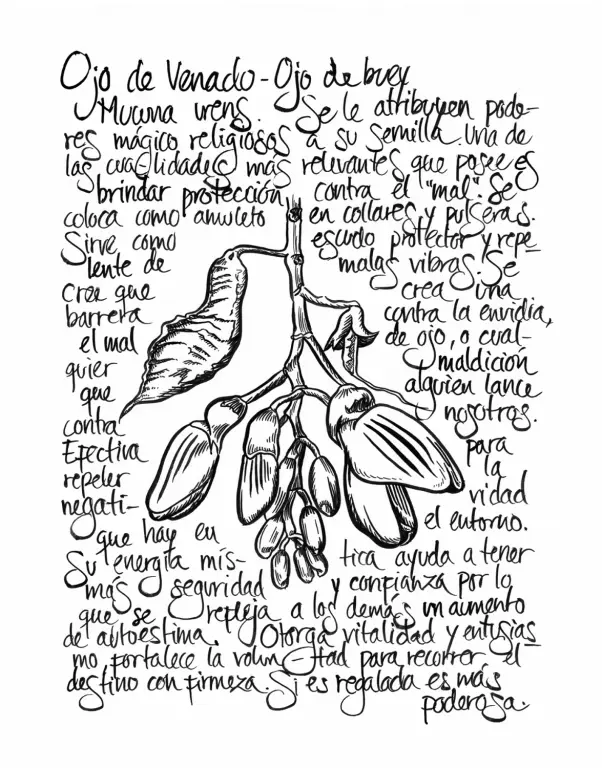 Ojo de Venado - Ojo de buey
Mucuna urens. Se le atribuyen pode-
res mágico religiosos a su semilla. Una de
las cualidades más relevantes que posee es
brindar protección contra el "mal". Se
coloca como amuleto en collares y pulseras.
Sirve como escudo protector y repe-
lente de malas vibras. Se
cree que crea una
barrera contra la envidia,
el mal de ojo, o cual-
quier maldición
que alguien lance
contra nosotros.
Efectiva para
repeler la
negati- vidad
que hay en el entorno.
Su energía mís- tica ayuda a tener
más seguridad y confianza por lo
que se refleja a los demás un aumento
de autoestima. Otorga vitalidad y entusias_
mo, fortalece la volun-tad para recorrer el
destino con firmeza. Si es regalada es más
poderosa.